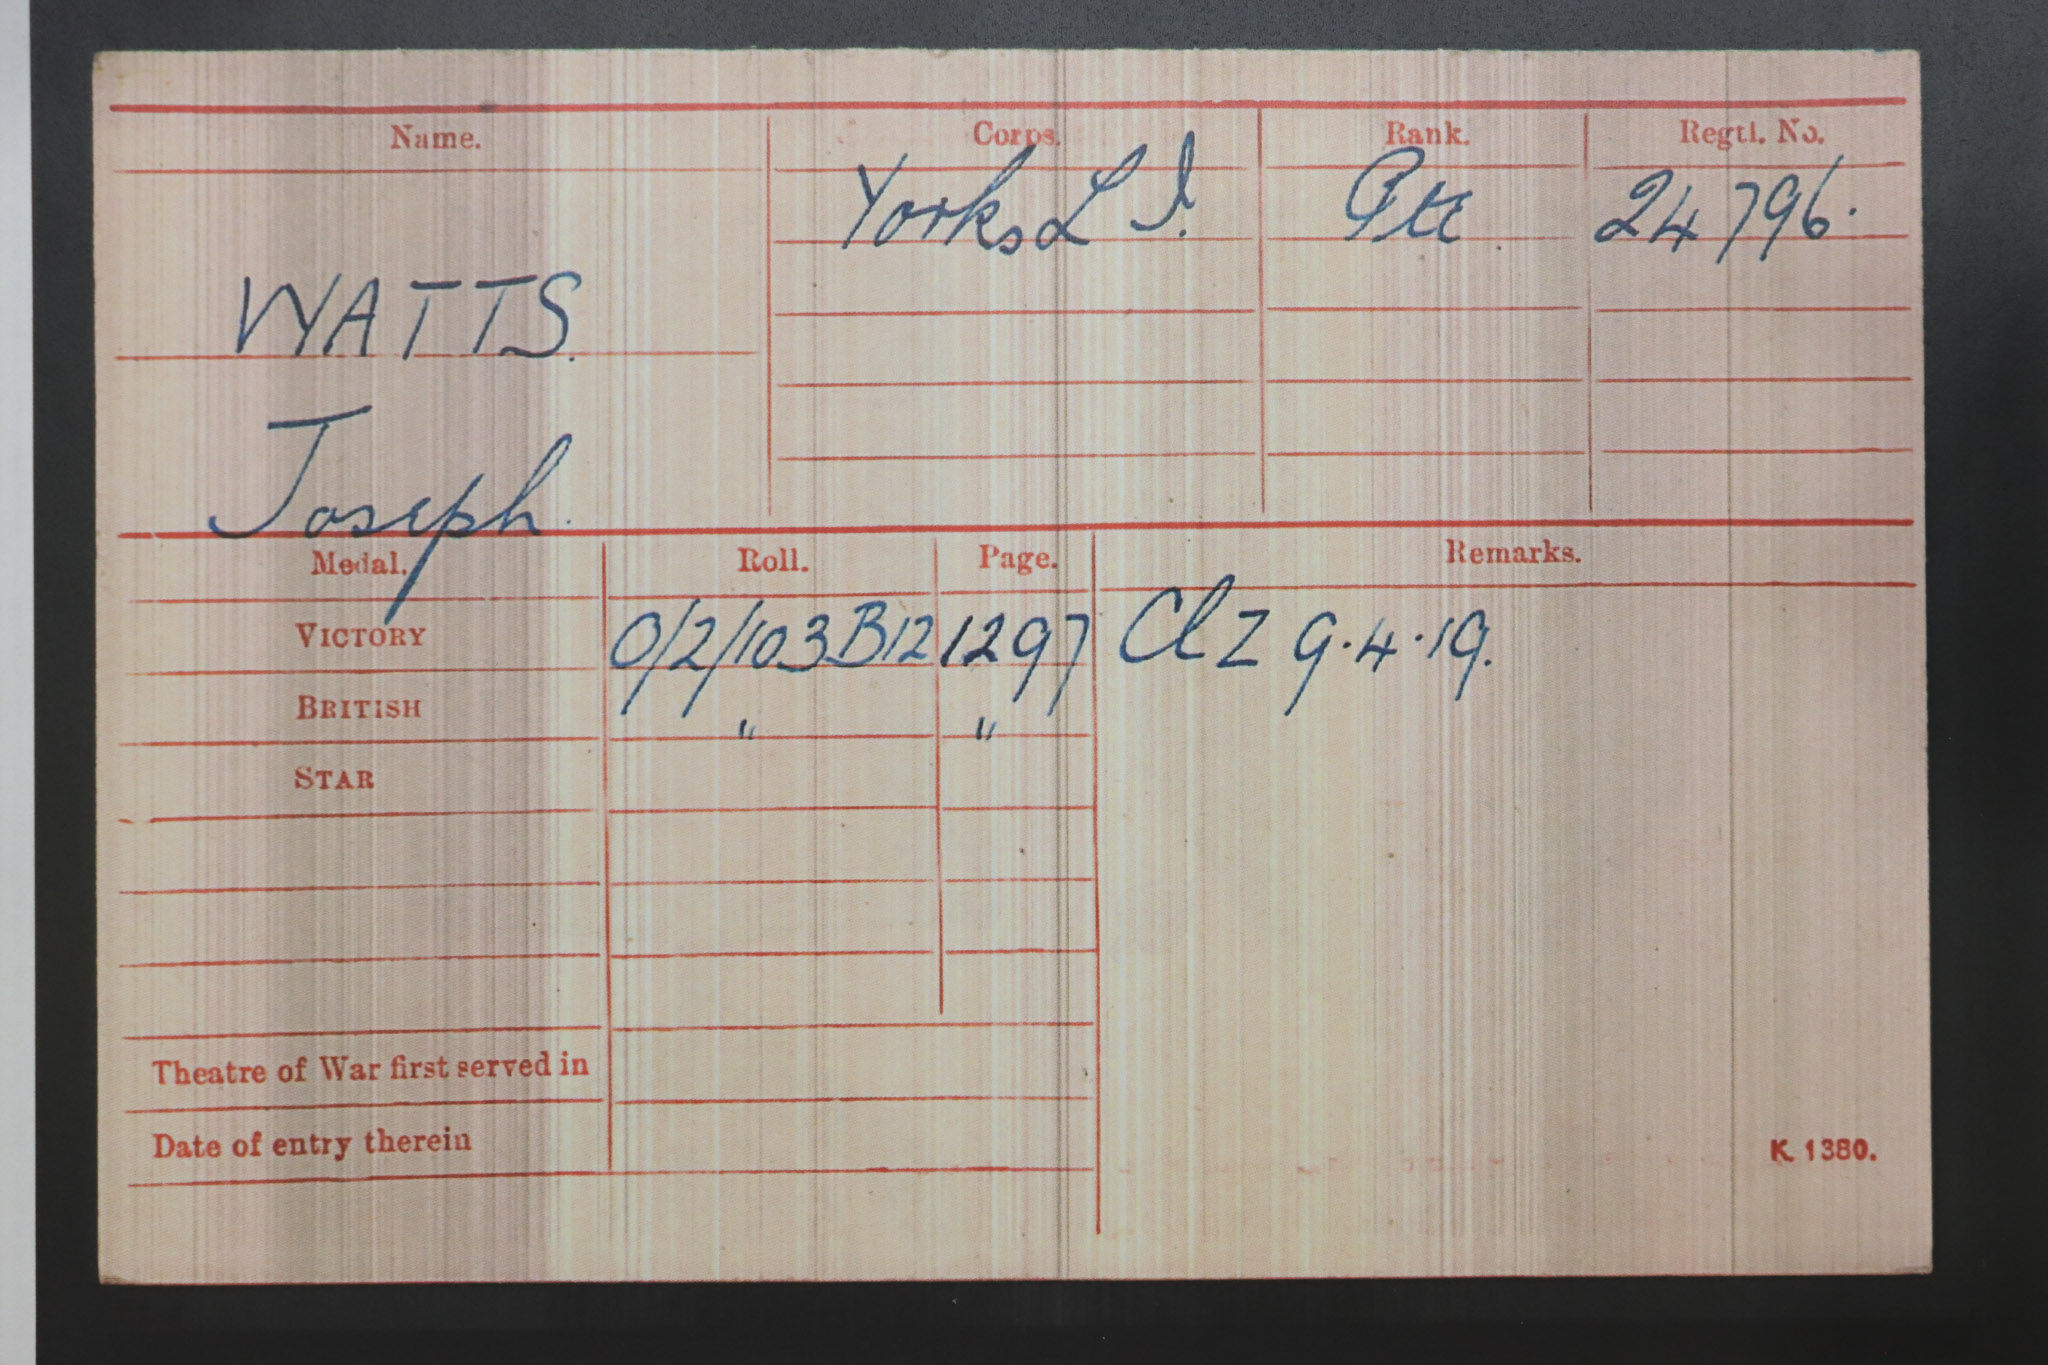 Name. Corps. Rank. Regtl. No.
Yorks L I. Pte. 24796.
WATTS.
Joseph.
Medal. Roll. Page. Remarks.
VICTORY 0/2/103B12 1297 Cl Z 9.4.19.
BRITISH " "
STAR
Theatre of War first served in
Date of entry therein
K. 1380.